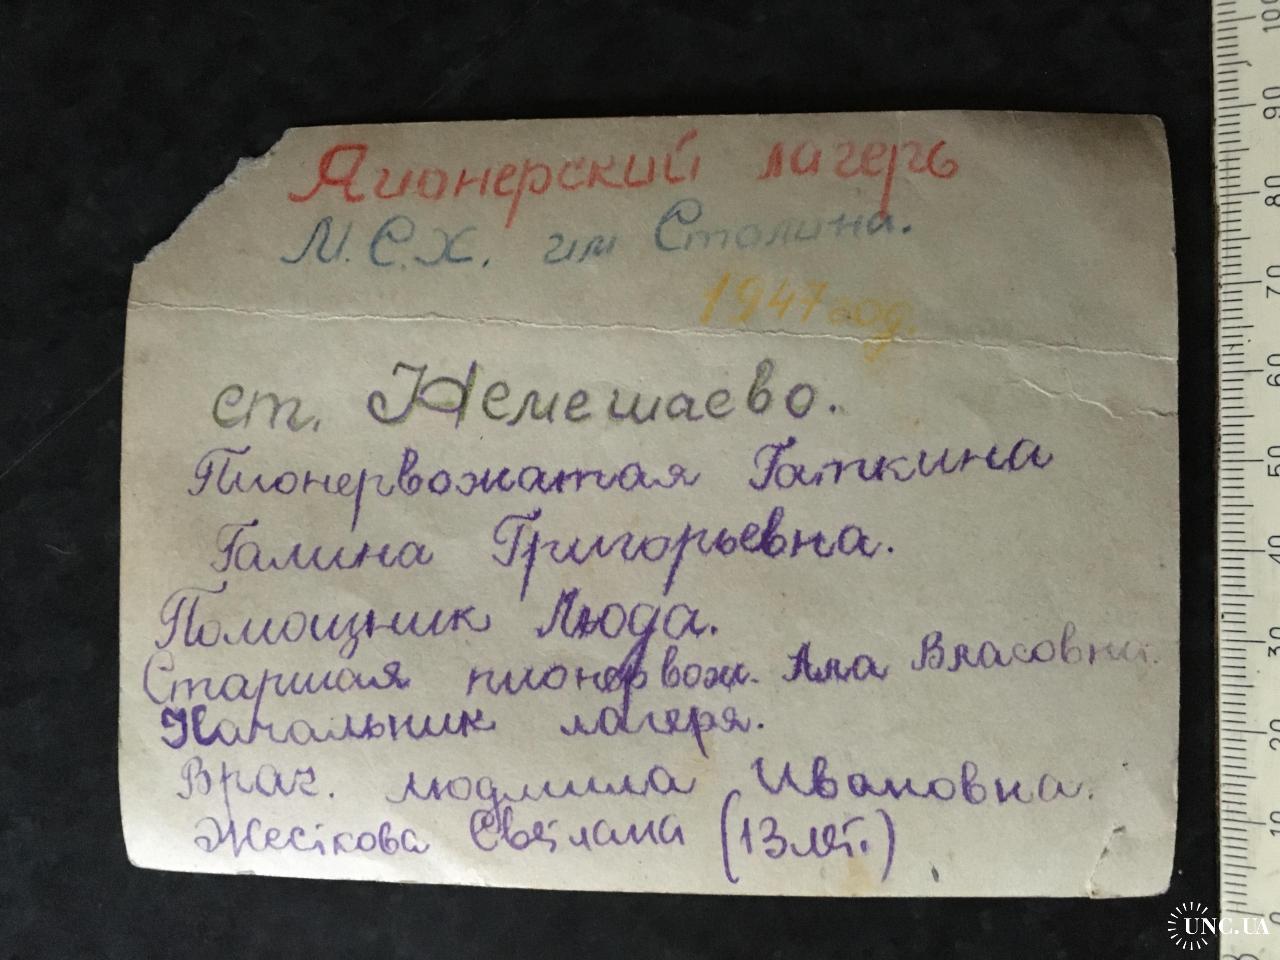 Пионерский лагерь
М.С.Х. им Сталина.
1947 год.
ст. Немешаево.
Пионервожатая Гаткина
Галина Григорьевна.
Помощник Люда.
Старшая пионервож. Ала Власовна.
Начальник лагеря.
Врач. Людмила Ивановна.
Светлана (13 лет.)
100
90
80
70
60
50
40
30
20
10
0
UNC.UA